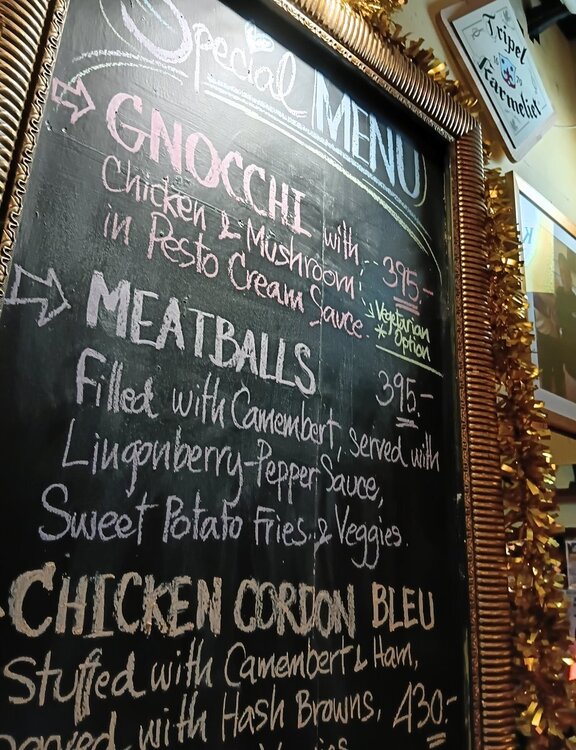 Special MENU
GNOCCHI with
Chicken & Mushroom
in Pesto Cream Sauce.
395.-
Vegetarian
* Option
MEATBALLS
395.-
Filled with Camembert, served with
Lingonberry-Pepper Sauce,
Sweet Potato Fries & Veggies.
CHICKEN CORDON BLEU
Stuffed with Camembert & Ham,
served with Hash Browns, 430.-
Veggies
Tripel
Karmeliet